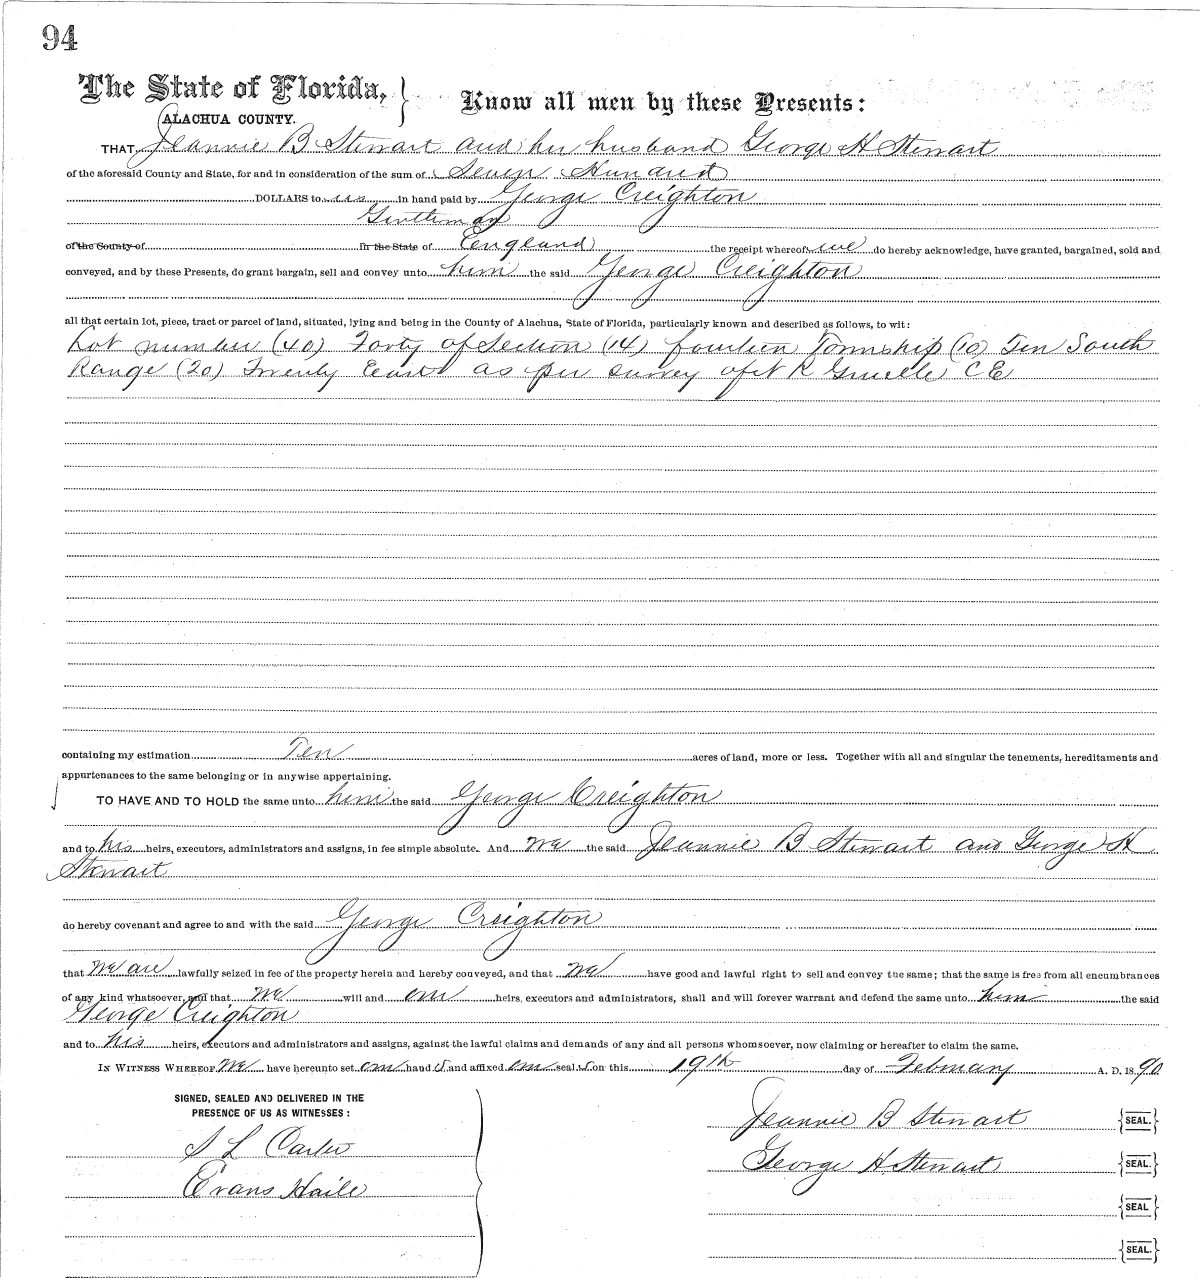 94
The State of Florida,
ALACHUA COUNTY.
Know all men by these Presents:
THAT Jeannie B Stewart and her husband George H Stewart
of the aforesaid County and State, for and in consideration of the sum of Seven Hundred
DOLLARS to us in hand paid by George Creighton
Gentleman
of the County of in the State of England the receipt whereof we do hereby acknowledge, have granted, bargained, sold and
conveyed, and by these Presents, do grant bargain, sell and convey unto him the said George Creighton
all that certain lot, piece, tract or parcel of land, situated, lying and being in the County of Alachua, State of Florida, particularly known and described as follows, to wit:
Lot number (40) Forty of Section (14) fourteen Township (10) Ten South
Range (20) Twenty East as per survey of R Gruelle CE
containing my estimation Ten acres of land, more or less. Together with all and singular the tenements, hereditaments and
appurtenances to the same belonging or in anywise appertaining.
TO HAVE AND TO HOLD the same unto him the said George Creighton
and to his heirs, executors, administrators and assigns, in fee simple absolute. And we the said Jeannie B Stewart and George H
Stewart
do hereby covenant and agree to and with the said George Creighton
that we are lawfully seized in fee of the property herein and hereby conveyed, and that we have good and lawful right to sell and convey the same; that the same is free from all encumbrances
of any kind whatsoever, and that we will and our heirs, executors and administrators, shall and will forever warrant and defend the same unto him the said
George Creighton
and to his heirs, executors and administrators and assigns, against the lawful claims and demands of any and all persons whomsoever, now claiming or hereafter to claim the same.
IN WITNESS WHEREOF we have hereunto set our hand s and affixed our seal s on this 19th day of February A. D. 1890
SIGNED, SEALED AND DELIVERED IN THE
PRESENCE OF US AS WITNESSES:
S L Carter
Evans Haile
Jeannie B Stewart SEAL.
George H Stewart SEAL.
SEAL
SEAL.